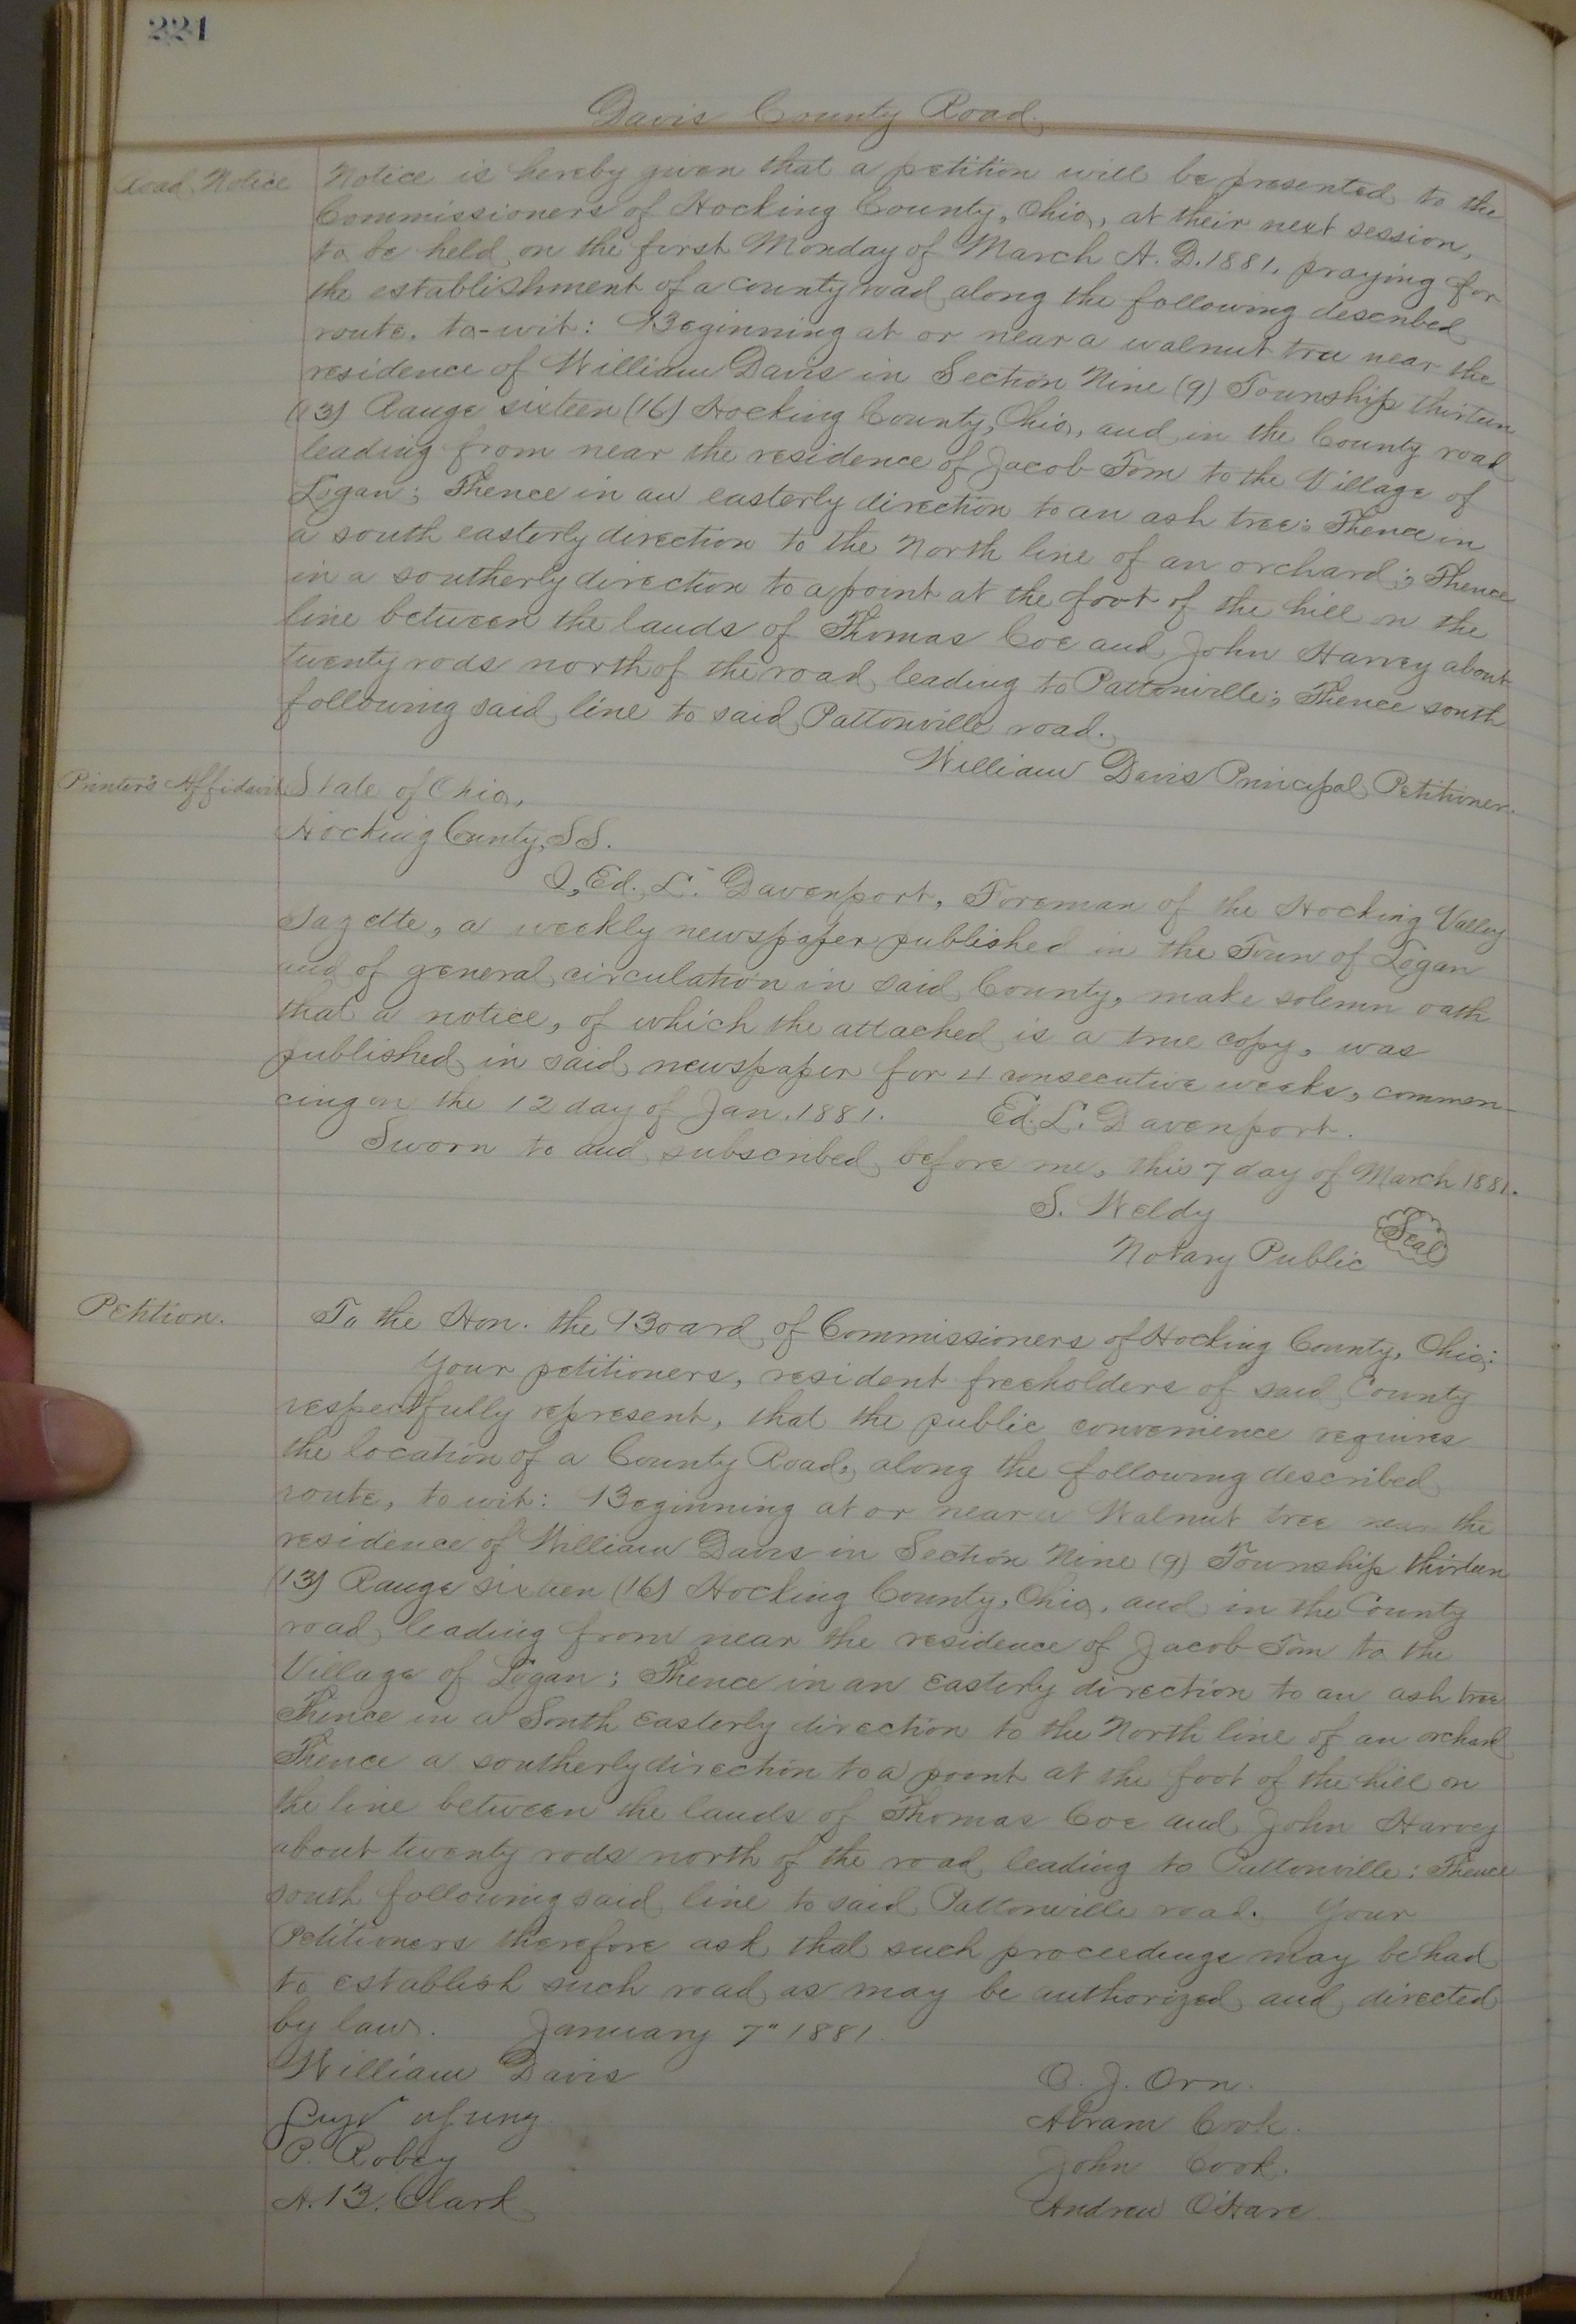 221
Davis County Road.
Road Notice
Notice is hereby given that a petition will be presented to the
Commissioners of Hocking County, Ohio, at their next session,
to be held on the first Monday of March A. D. 1881, praying for
the establishment of a county road along the following described
route, to-wit: Beginning at or near a walnut tree near the
residence of William Davis in Section Nine (9) Township thirteen
(13) Range sixteen (16) Hocking County, Ohio, and in the County road
leading from near the residence of Jacob Tom to the Village of
Logan; Thence in an easterly direction to an ash tree; Thence in
a south easterly direction to the North line of an orchard; Thence
in a southerly direction to a point at the foot of the hill on the
line between the lands of Thomas Coe and John Harvey about
twenty rods north of the road leading to Pattonville; Thence south
following said line to said Pattonville road.
William Davis Principal Petitioner.
Printer's Affidavit
State of Ohio,
Hocking County, SS.
I, Ed. L. Davenport, Foreman of the Hocking Valley
Gazette, a weekly newspaper published in the Town of Logan
and of general circulation in said County, make solemn oath
that a notice, of which the attached is a true copy, was
published in said newspaper for 4 consecutive weeks, commen-
cing on the 12 day of Jan. 1881. Ed. L. Davenport.
Sworn to and subscribed before me, this 7 day of March 1881.
S. Weldy
Notary Public Seal
Petition.
To the Hon. the Board of Commissioners of Hocking County, Ohio:
Your petitioners, resident freeholders of said County
respectfully represent, that the public convenience requires
the location of a County Road, along the following described
route, to wit: Beginning at or near a Walnut tree near the
residence of William Davis in Section Nine (9) Township thirteen
(13) Range sixteen (16) Hocking County, Ohio, and in the County
road leading from near the residence of Jacob Tom to the
Village of Logan; Thence in an easterly direction to an ash tree
Thence in a South easterly direction to the North line of an orchard
Thence a southerly direction to a point at the foot of the hill on
the line between the lands of Thomas Coe and John Harvey
about twenty rods north of the road leading to Pattonville; Thence
south following said line to said Pattonville road. Your
Petitioners therefore ask that such proceedings may be had
to establish such road as may be authorized and directed
by law. January 7" 1881.
William Davis
O. J. Orn.
Abram Cook.
P. Robey
John Cook.
A. B. Clark
Andrew O'Hare